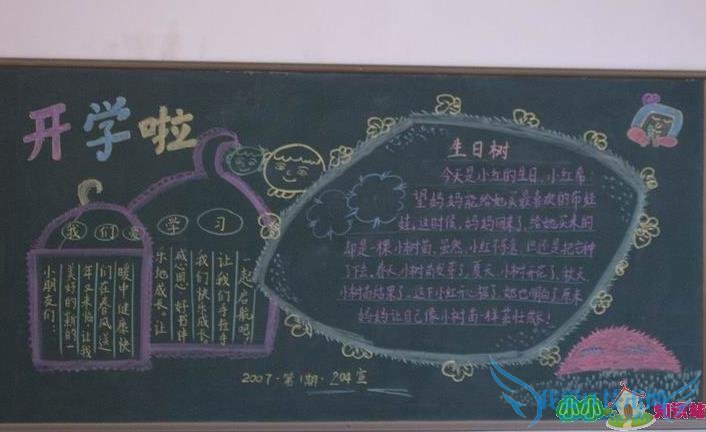 开学啦
我们要学习
小朋友们：
美好的新的
年又来临，让我
们在春风送
暖中健康快
乐地成长。让
感恩 好书伴
我们快乐成长
让我们手拉手
一起启航吧！
生日树
今天是小红的生日，小红希
望妈妈能给她买最喜欢的布娃
娃。这时候，妈妈回来了，给她买来的
却是一棵小树苗。虽然，小红不乐意，但还是把它种
了下去。春天，小树苗发芽了，夏天，小树开花了，秋天
小树苗结果了。这下小红开心极了，她也明白了原来
妈妈让自己像小树苗一样茁壮成长！
2007·第1期·204宣
小小